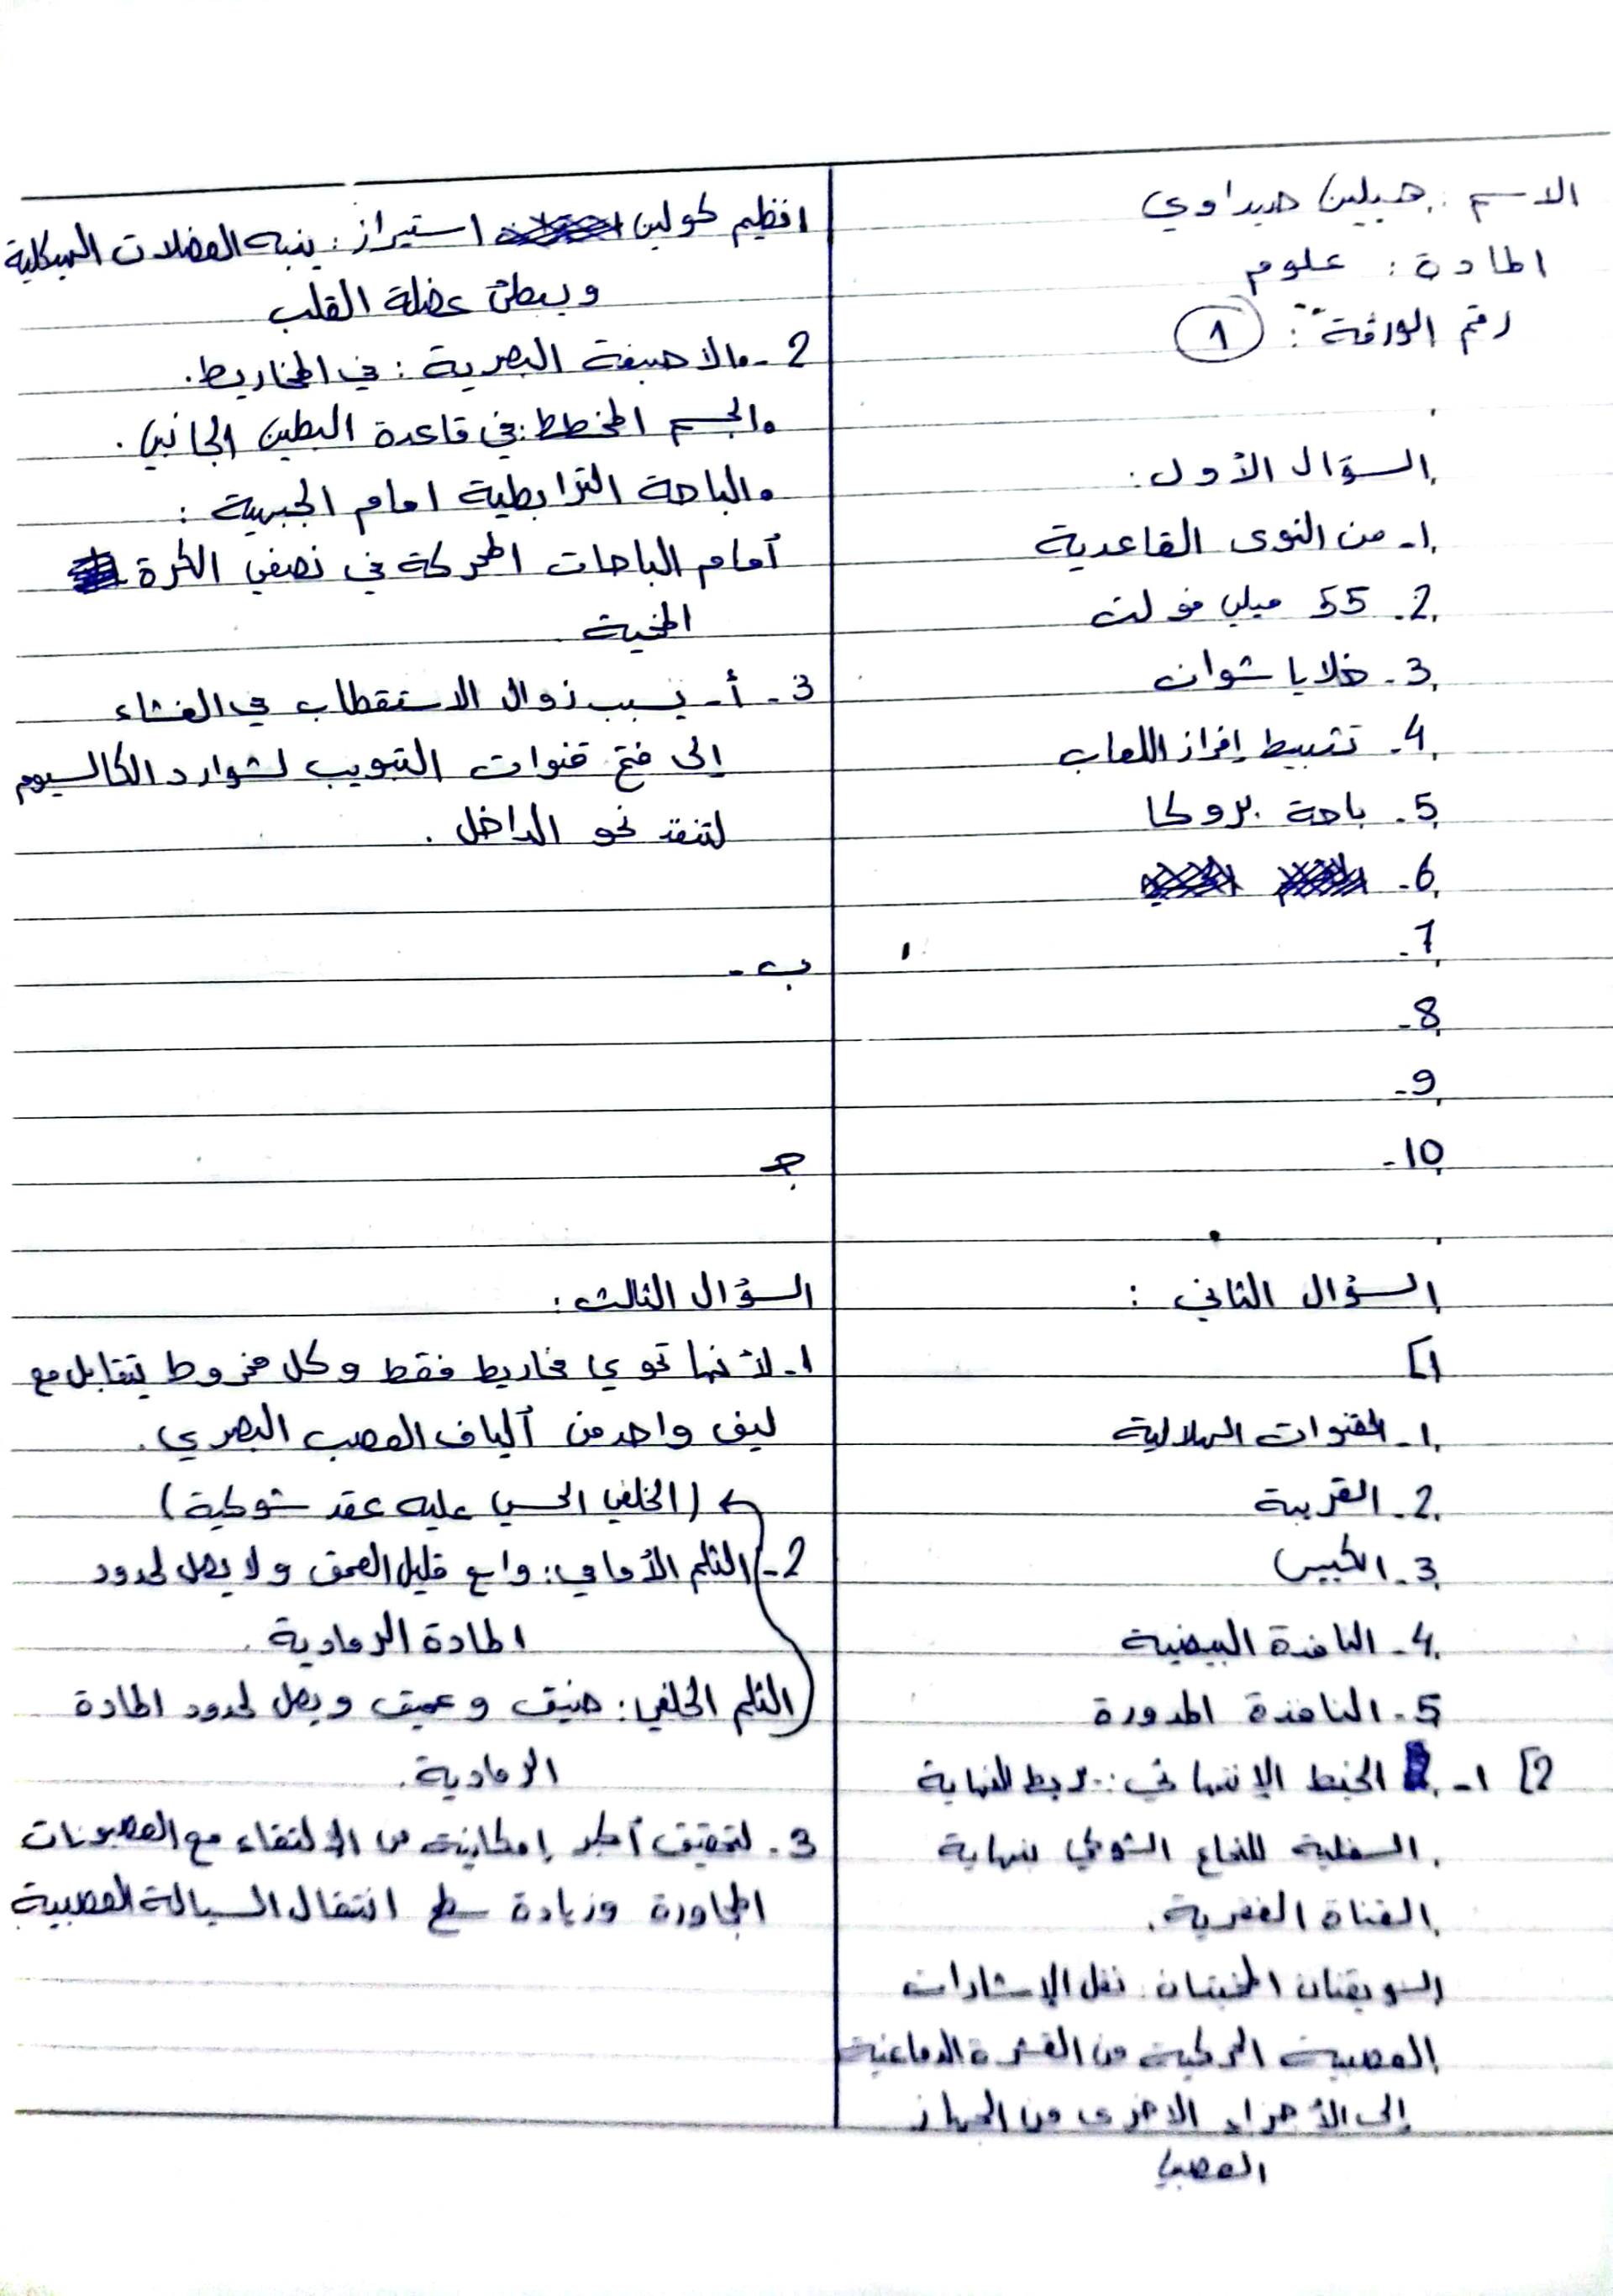 الاسم: جيلين صيداوي
المادة: علوم
رقم الورقة: 1
السؤال الأول:
1- من النوى القاعدية
2- 55 ميلي فولت
3- خلايا شوان
4- تثبيط إفراز اللعاب
5- باحة بروكا
6-
7-
8-
9-
10-
السؤال الثاني:
1]
1- القنوات الهلالية
2- القريبة
3- الكييس
4- النافذة البيضية
5- النافذة المدورة
2] 1- الخيط الإنتهائي: يربط النهاية
السفلية للنخاع الشوكي بنهاية
القناة الفقرية.
السويقتان المخيتان: نقل الإشارات
العصبية الحركية من القشرة الدماغية
إلى الأجزاء الاخرى من الجهاز
العصبي
انظيم كولين استيراز: ينبه العضلات الهيكلية
ويبطئ عضلة القلب
2- الاصبغة البصرية: في المخاريط.
الجسم المخطط: في قاعدة البطين الجانبي.
الباحة الترابطية امام الجبهية:
أمام الباحات المحركة في نصفي الكرة
المخية.
3- أ- يسبب زوال الاستقطاب في الغشاء
إلى فتح قنوات التبويب لشوارد الكالسيوم
لتنفذ نحو الداخل.
ب-
ج
السؤال الثالث:
1- لأنها تحوي مخاريط فقط وكل مخروط يتقابل مع
ليف واحد من ألياف العصب البصري.
(الخلفي الحسي عليه عقد شوكية)
2- الثلم الأمامي: واسع قليل العمق ولا يصل لحدود
المادة الرمادية.
الثلم الخلفي: ضيق وعميق ويصل لحدود المادة
الرمادية.
3- لتحقيق أكبر إمكانية من الالتقاء مع العصبونات
المجاورة وزيادة سطح انتقال السيالة العصبية